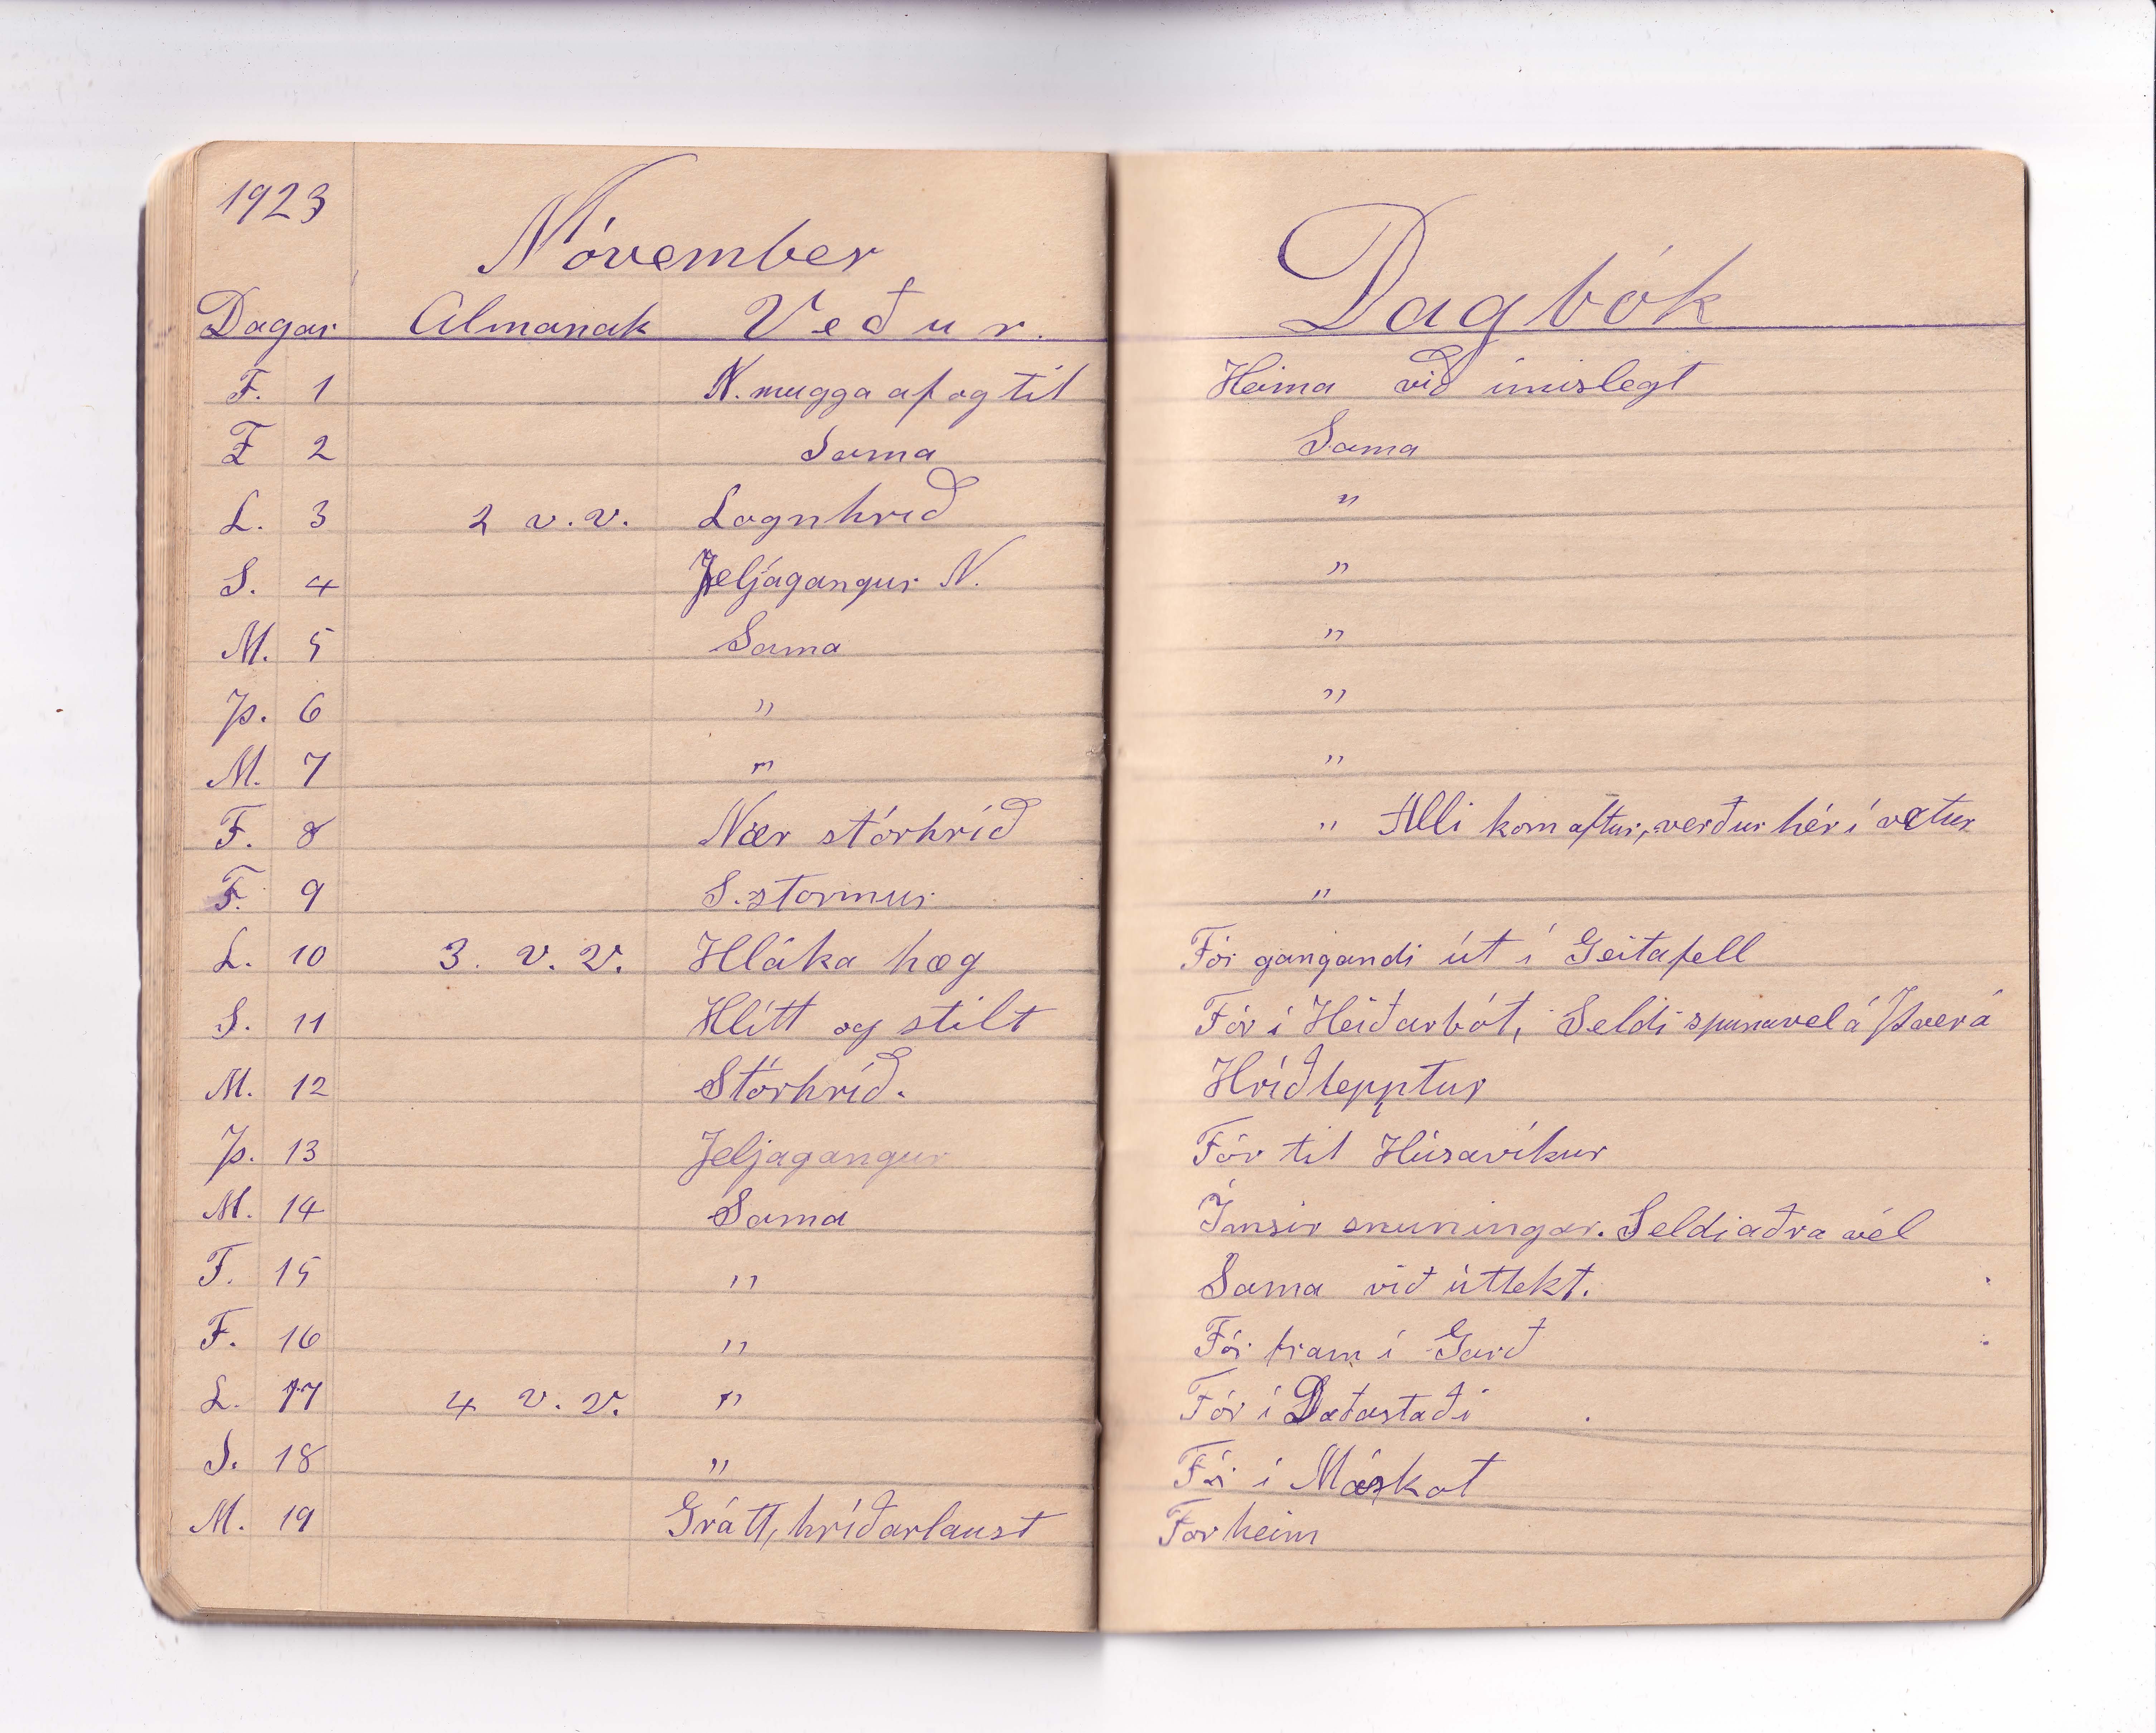 1923
Nóvember
Dagar Almanak Veður.
F. 1 N. mugga af og til
F 2 Sama
L. 3 2 v.v. Lognhríð
S. 4 Jeljagangur N.
M. 5 Sama
Þ. 6 "
M. 7 "
F. 8 Nær stórhríð
F. 9 S. stormur
L. 10 3. v. v. Hláka hæg
S. 11 Hlítt og stilt
M. 12 Stórhríð.
Þ. 13 Jeljagangur
M. 14 Sama
F. 15 "
F. 16 "
L. 17 4 v. v. "
S. 18 "
M. 19 Grátt, hríðarlaust
Dagbók
Heima við ímislegt
Sama
"
"
"
"
"
" Alli kom aftur, verður hér í vetur
"
Fór gangandi út í Geitafell
Fór í Heiðarbót, Seldi spunavel á Þverá
Hríðtepptur
Fór til Húsavíkur
Ímsir snuningar. Seldi aðra vél
Sama við úttekt.
Fór fram í Garð
Fór í Daðastaði
Fór í Máskot
For heim